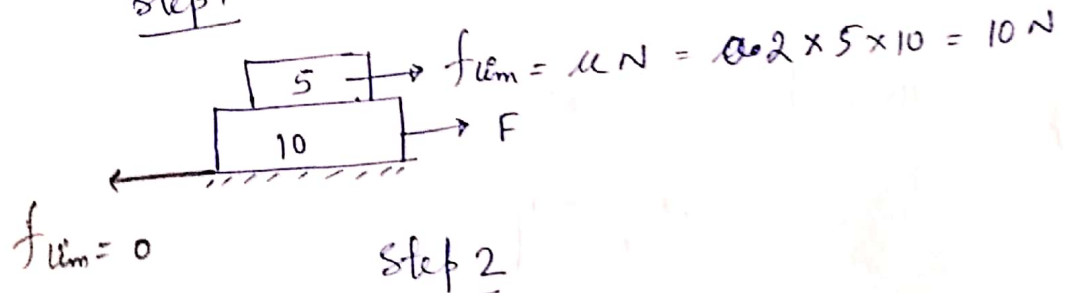 Step
5 → f lim = μN = 0.2 × 5 × 10 = 10 N
10 → F
f lim = 0
Step 2